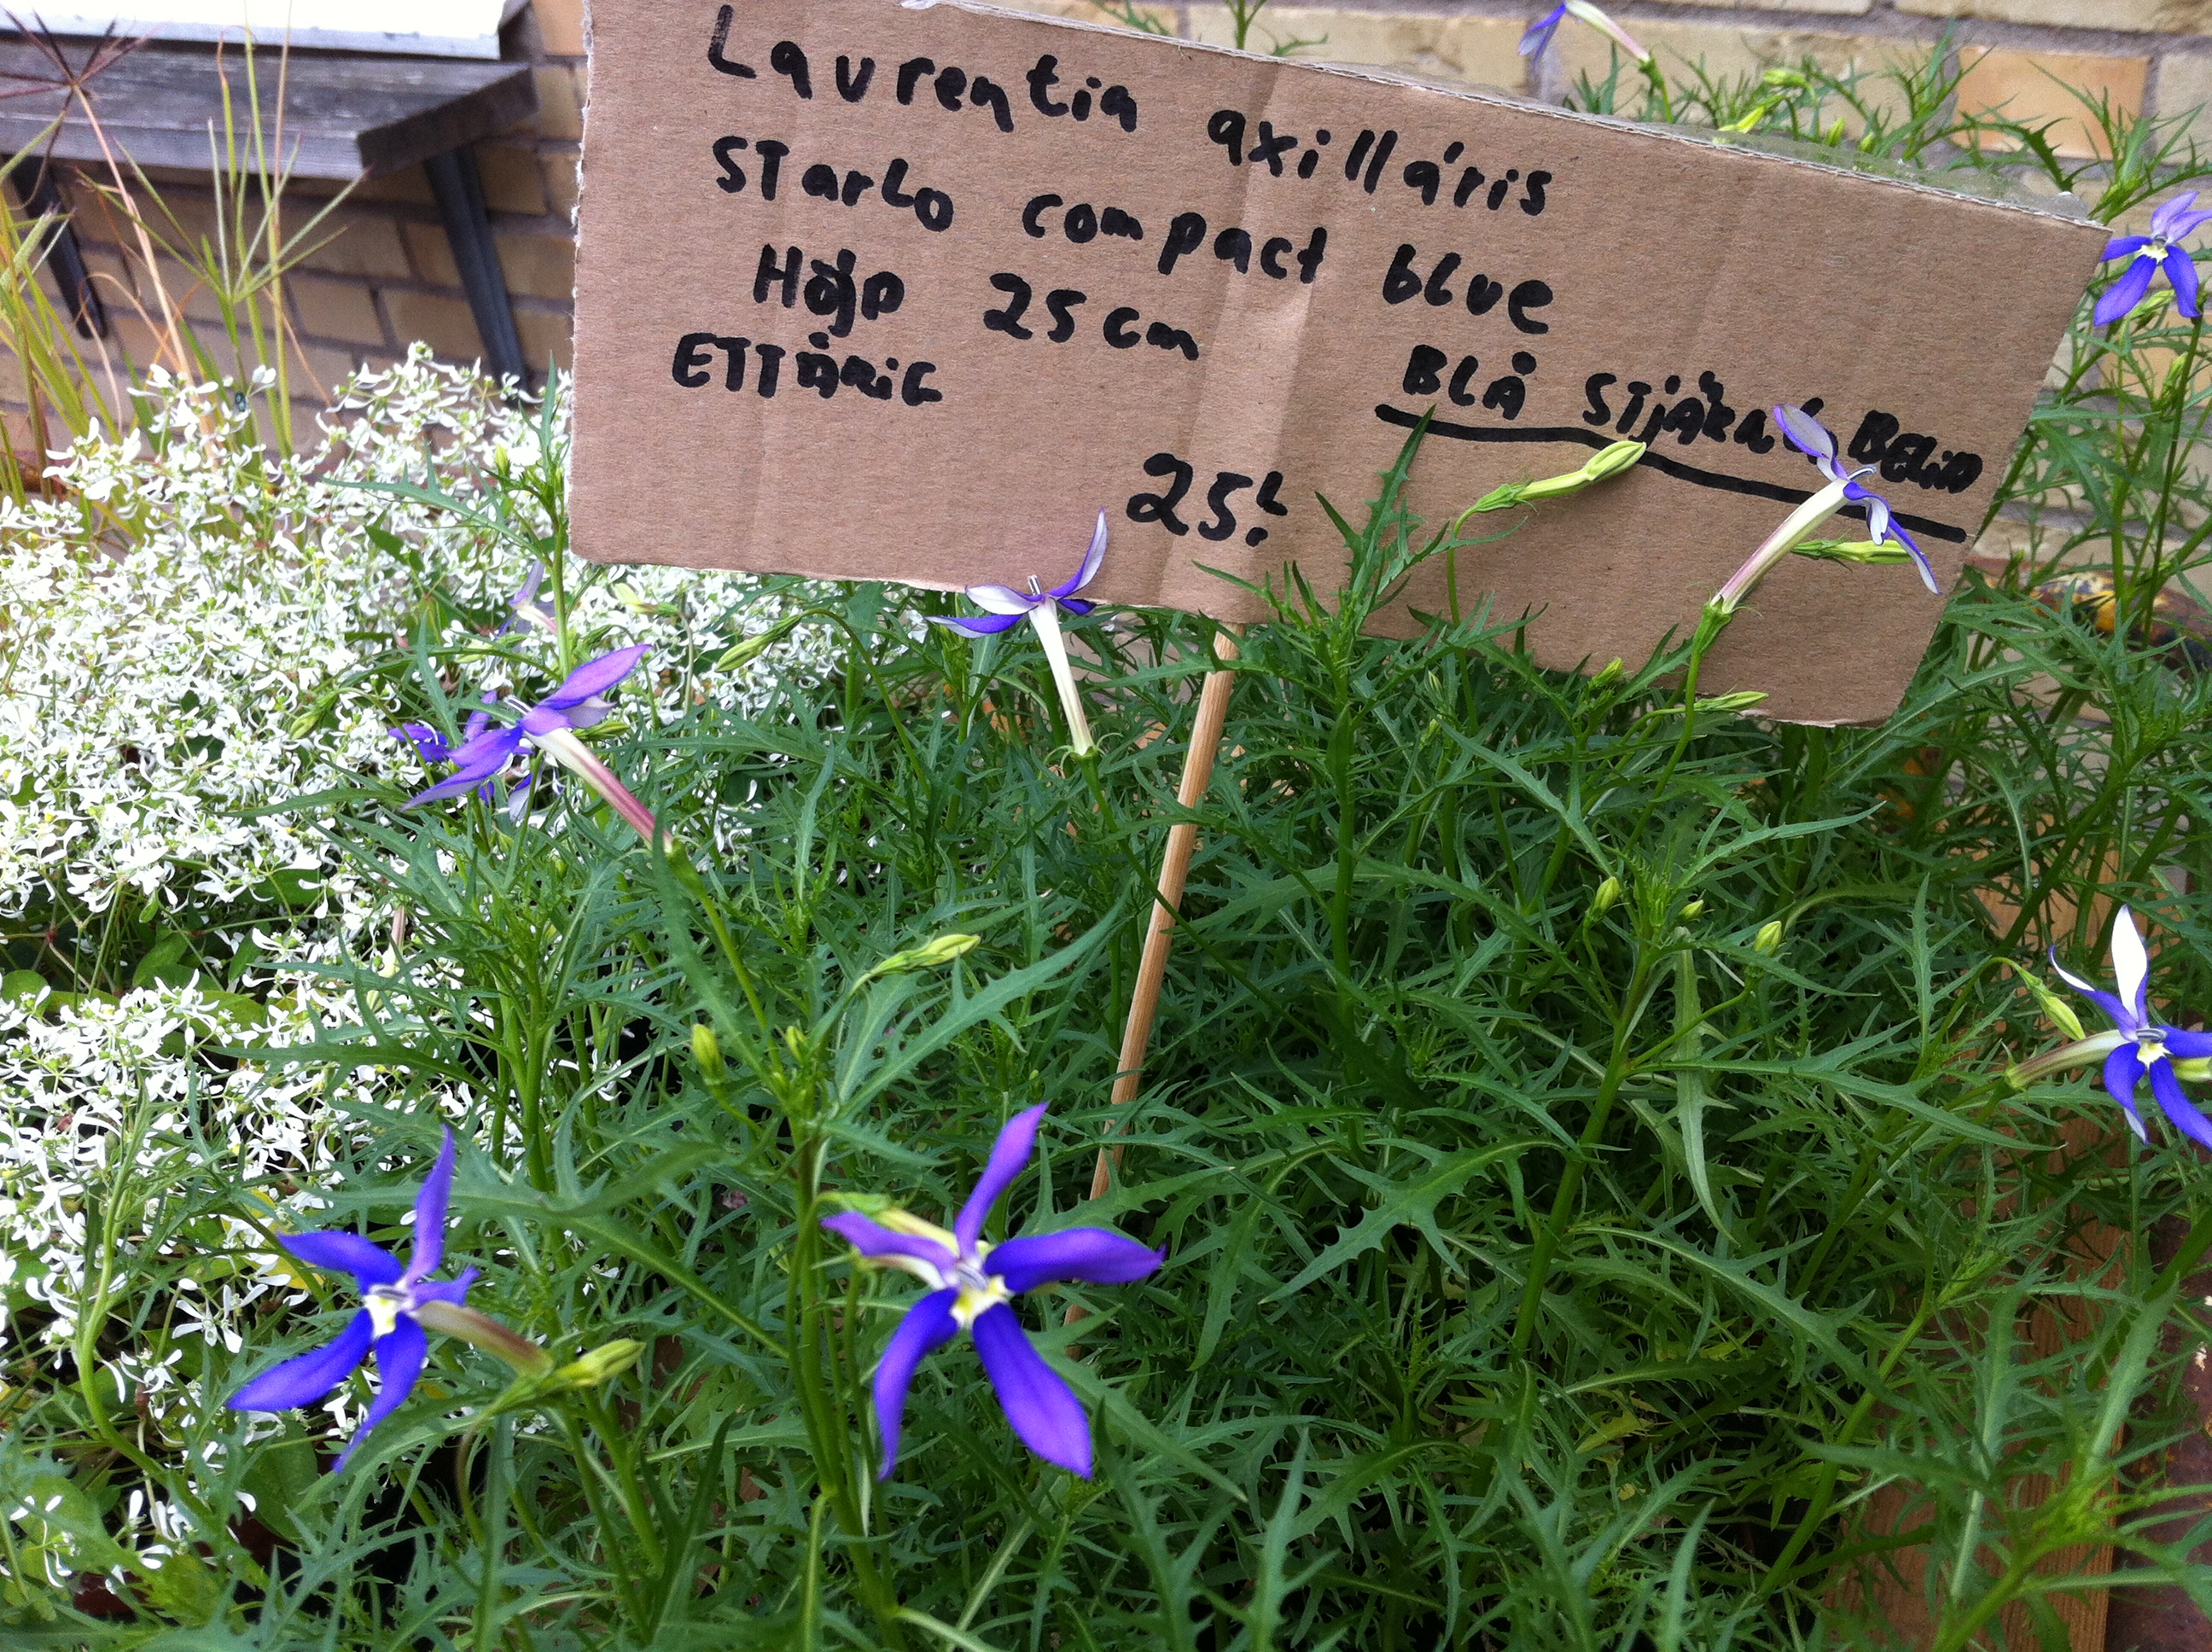 Laurentia axilláris
STarLo compact blue
Höjp 25 cm
ETTÅRiG
BLÅ STJÄRN
25: